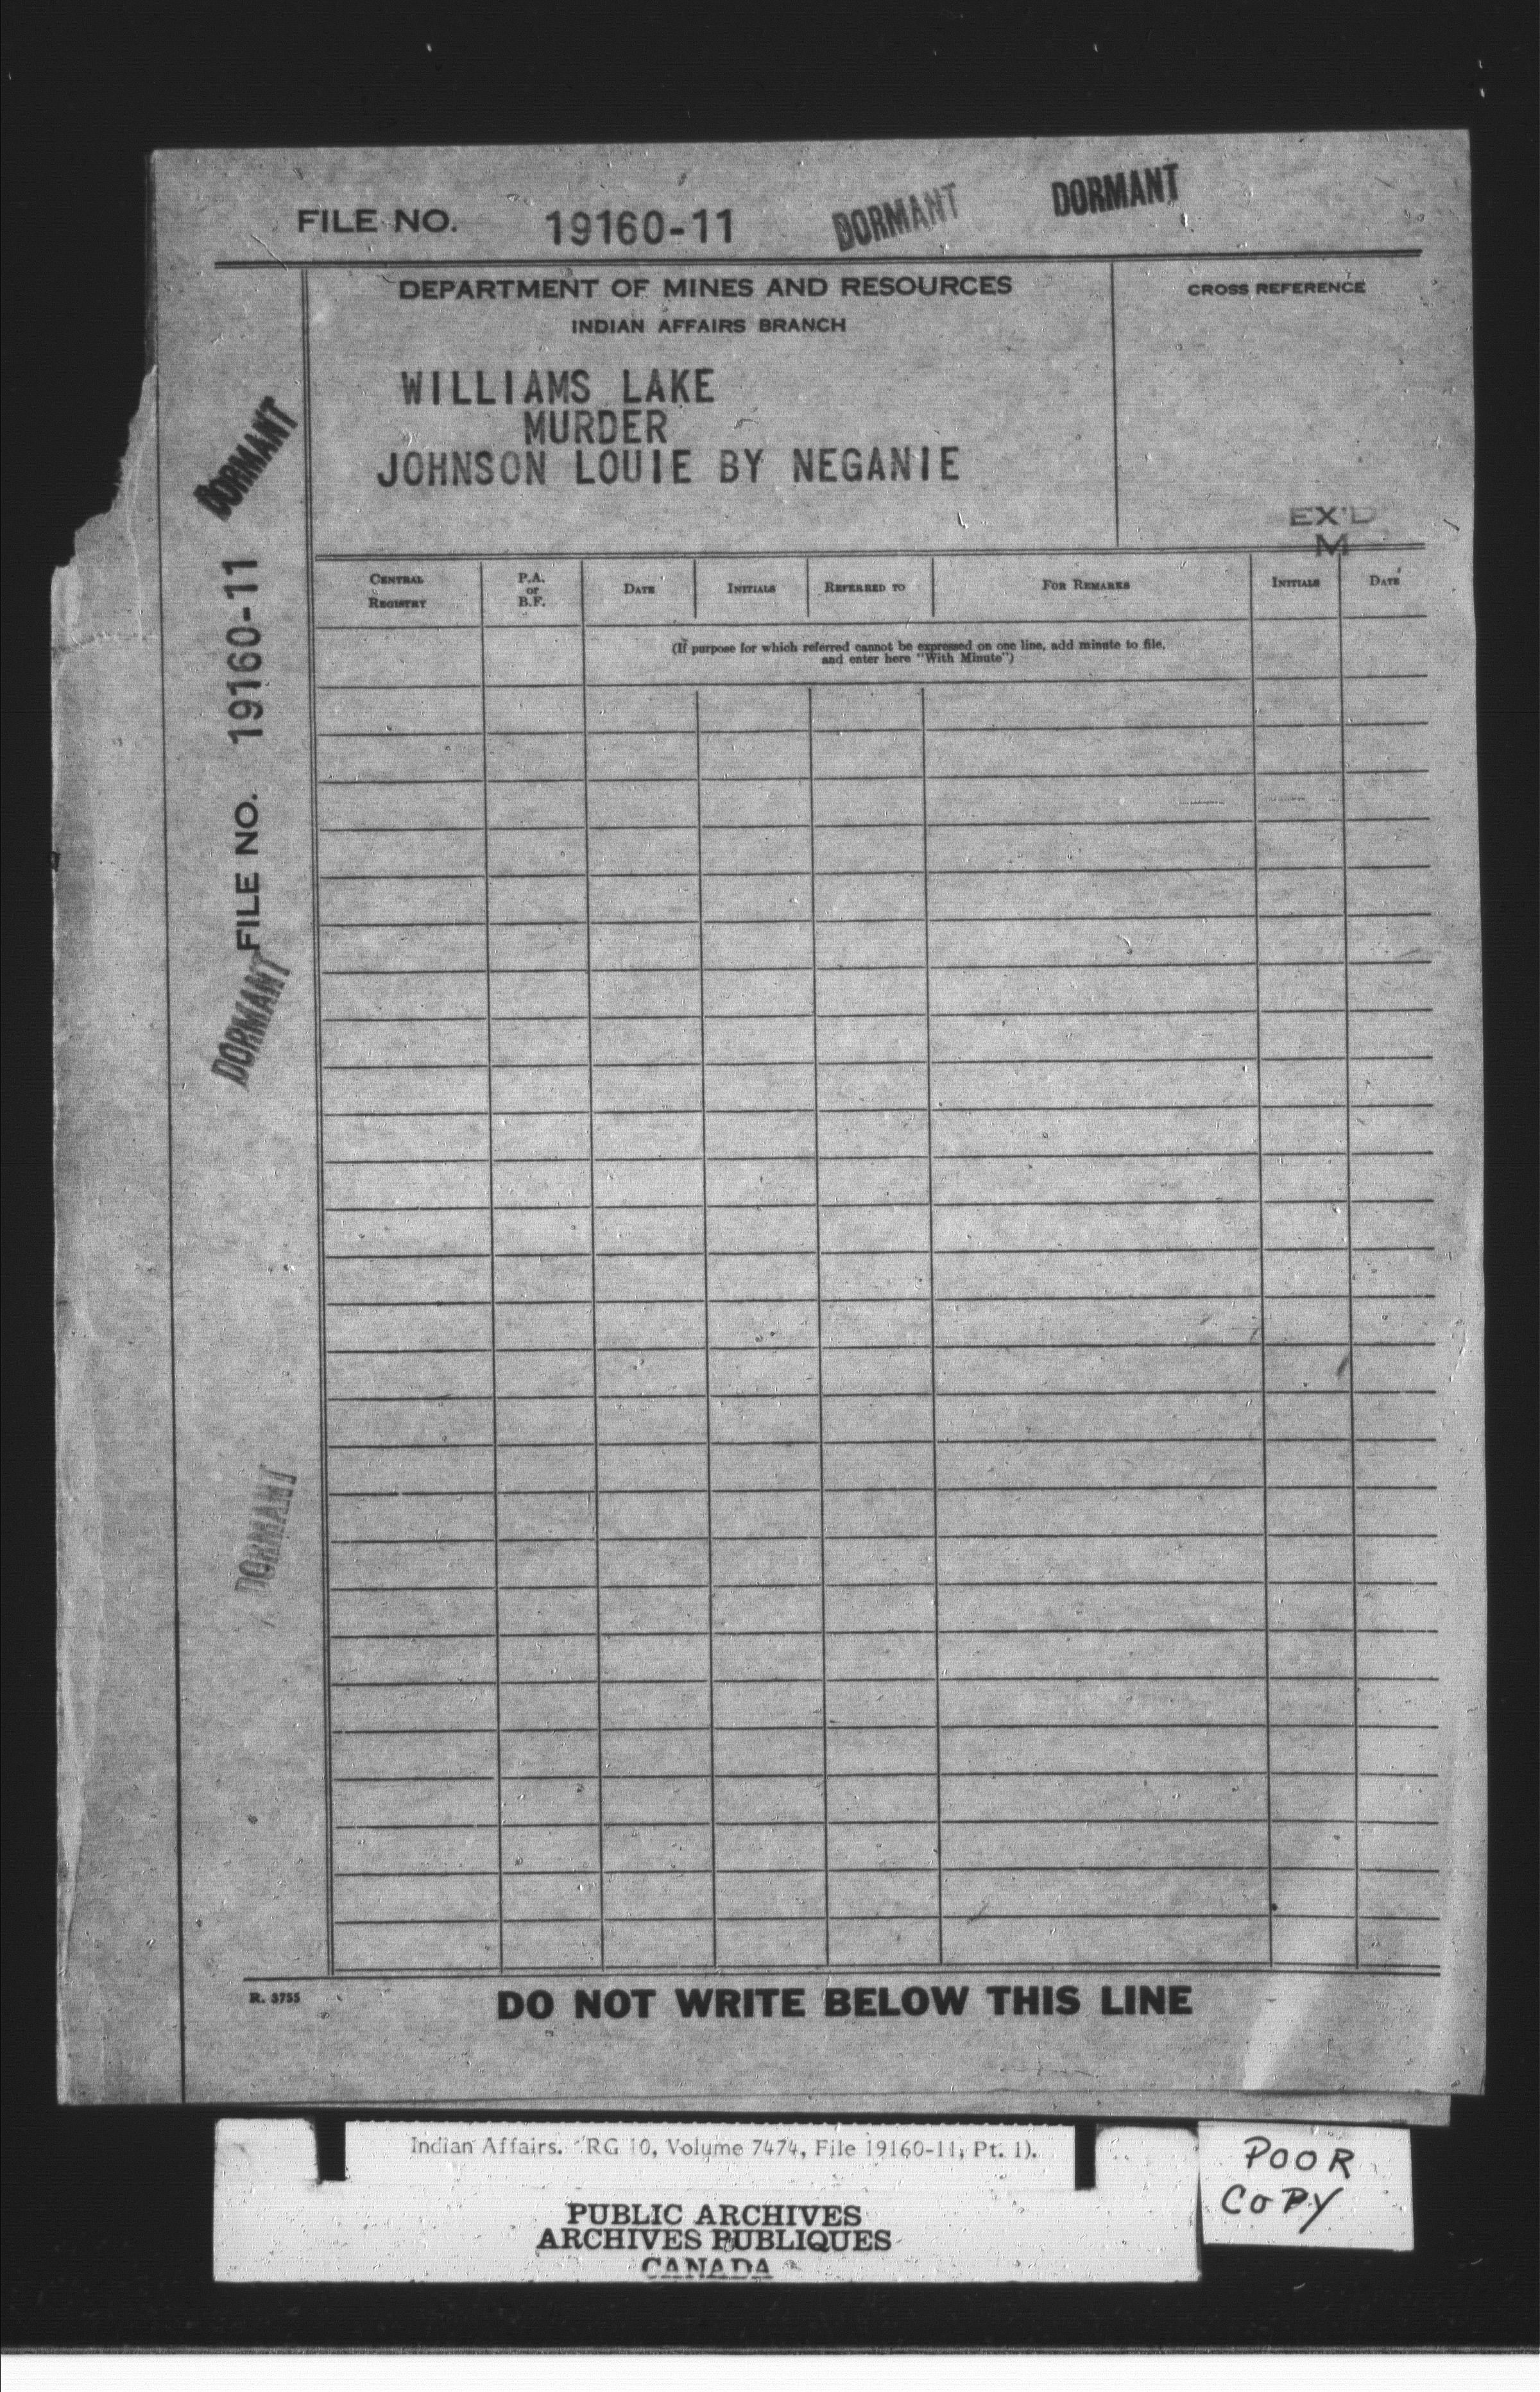 FILE NO. 19160-11 DORMANT DORMANT
DEPARTMENT OF MINES AND RESOURCES
INDIAN AFFAIRS BRANCH
CROSS REFERENCE
WILLIAMS LAKE
MURDER
JOHNSON LOUIE BY NEGANIE
EX'D
M
CENTRAL REGISTRY P.A. or B.F. DATE INITIALS REFERRED TO FOR REMARKS INITIALS DATE
(If purpose for which referred cannot be expressed on one line, add minute to file,
and enter here "With Minute")
DORMANT
FILE NO. 19160-11
DORMANT
DORMANT
R. 3755
DO NOT WRITE BELOW THIS LINE
Indian Affairs. (RG 10, Volume 7474, File 19160-11, Pt. 1).
PUBLIC ARCHIVES
ARCHIVES PUBLIQUES
CANADA
POOR
COPY